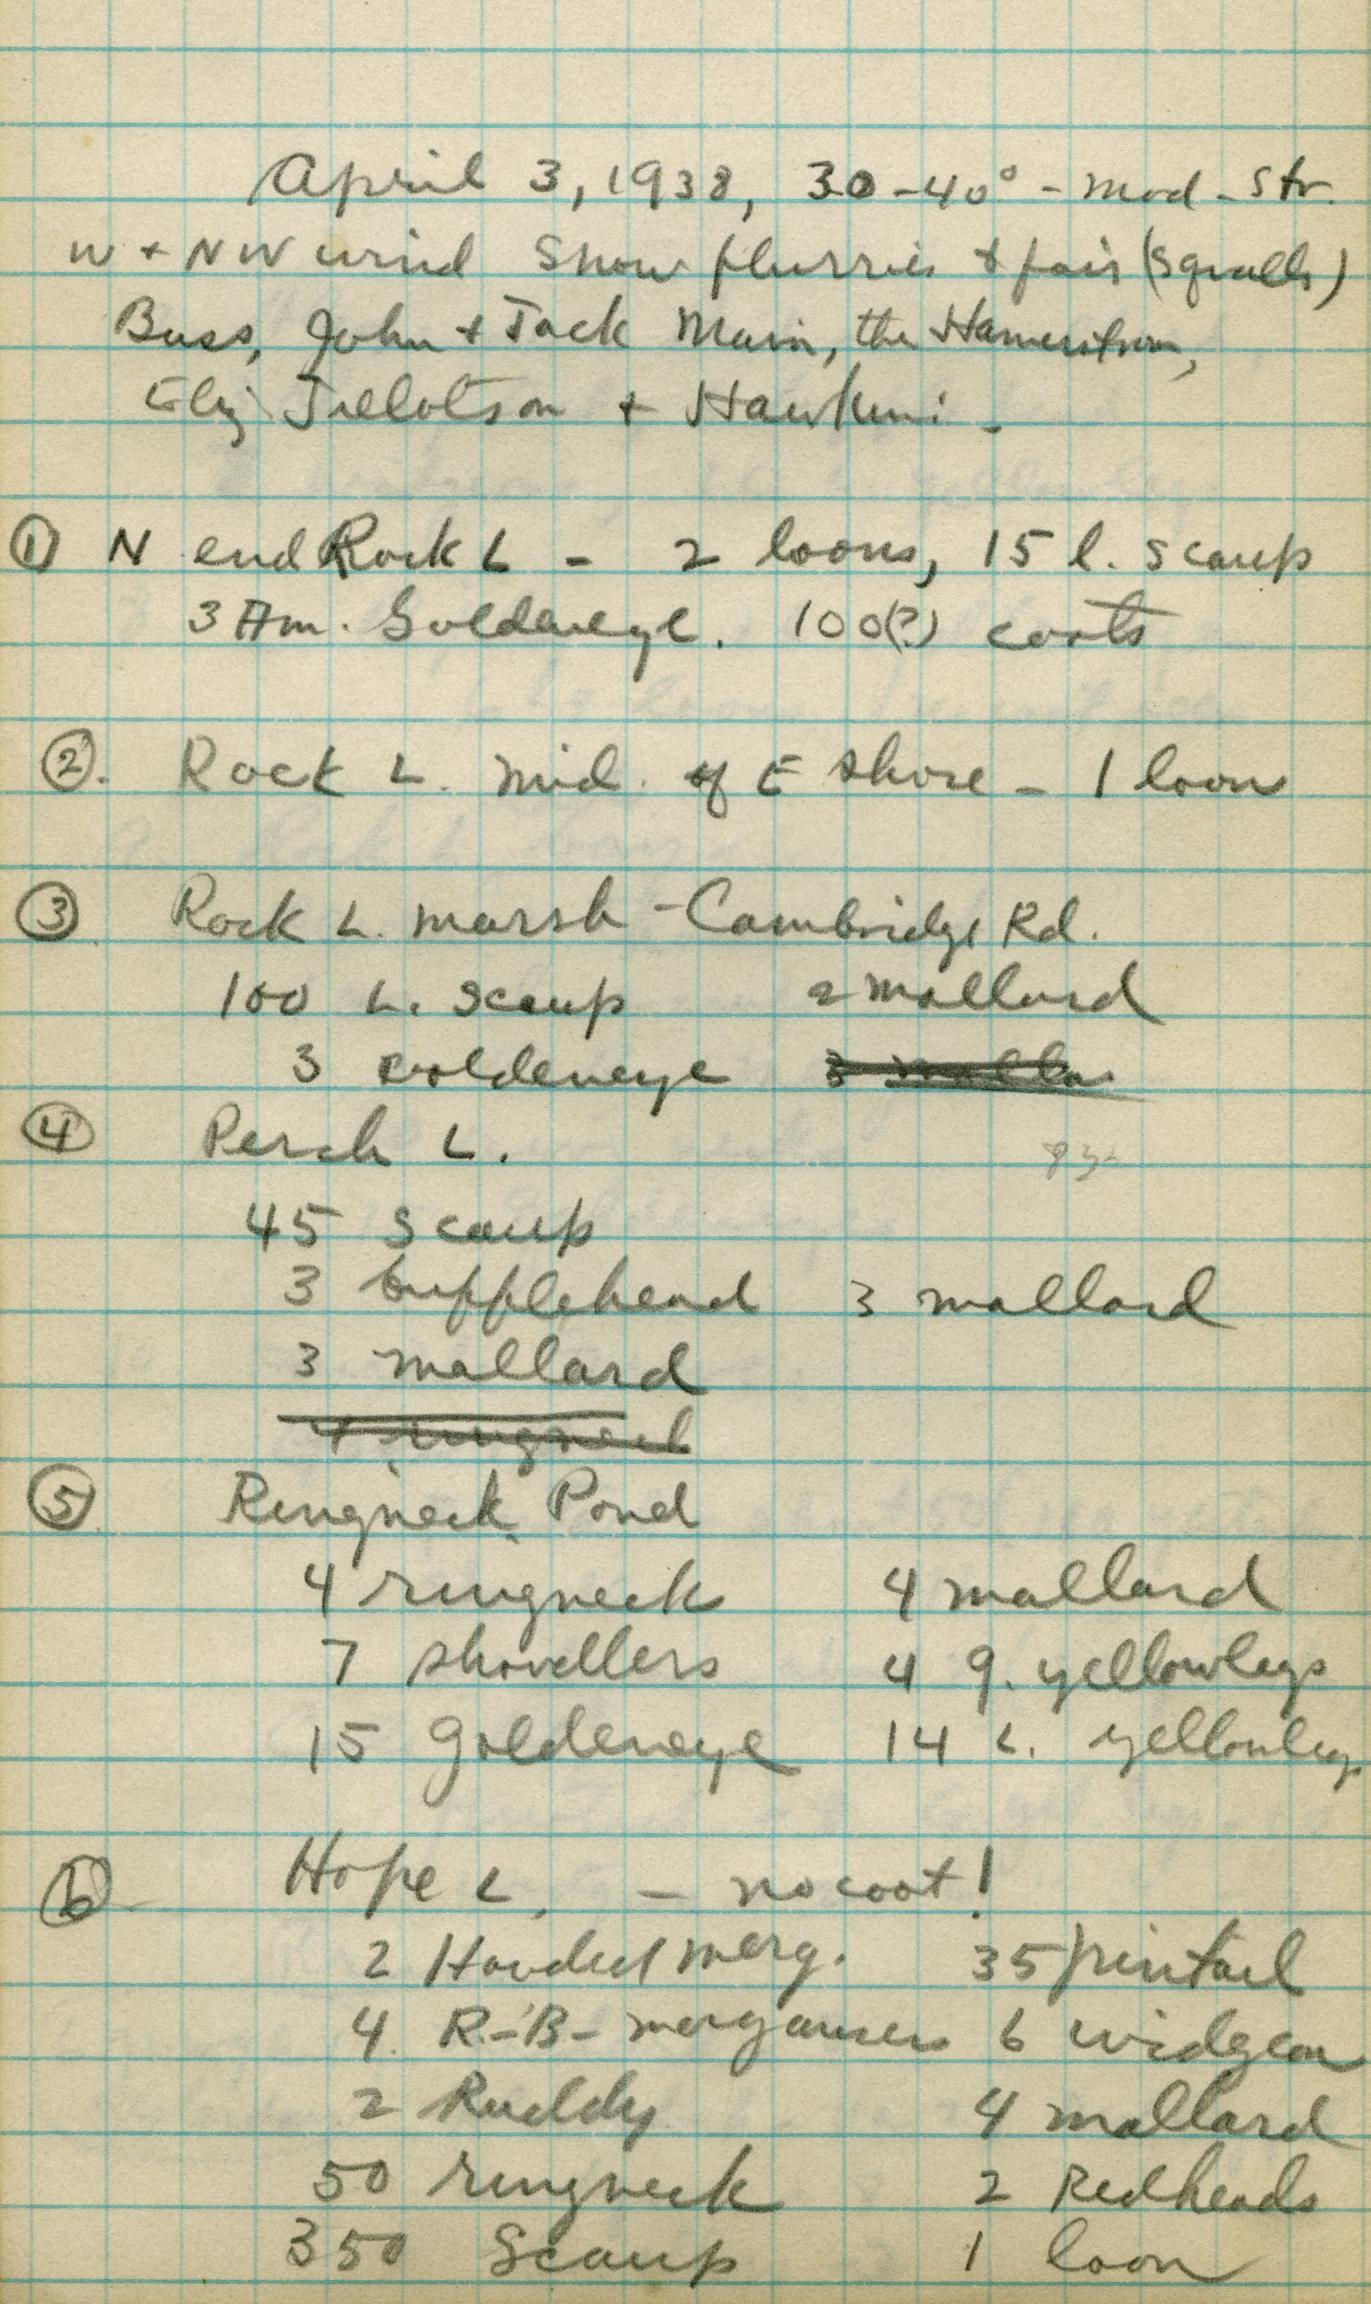 April 3, 1938, 30-40° - mod - str.
W + NW wind Snow flurries + fair (squalls)
Buss, John + Jack Main, the Hamerstroms,
Eliz Tillotson + Hawkins -
① N end Rock L - 2 loons, 15 l. scaup
3 Am. Goldeneye. 100(?) coots
②. Rock L. mid. of E shore - 1 loon
③. Rock L. marsh - Cambridge Rd.
100 L. scaup 2 mallard
3 Goldeneye 3 mallar
④ Perch L.
45 scaup
3 bufflehead 3 mallard
3 mallard
4 ringneck
⑤. Ringneck Pond
4 ringneck 4 mallard
7 shovellers 4 g. yellowlegs
15 goldeneye 14 L. yellowlegs
⑥ Hope L. - no coot!
2 Hooded merg. 35 pintail
4. R-B- mergansers 6 widgeon
2 Ruddy 4 mallard
50 ringneck 2 Redheads
350 Scaup 1 loon